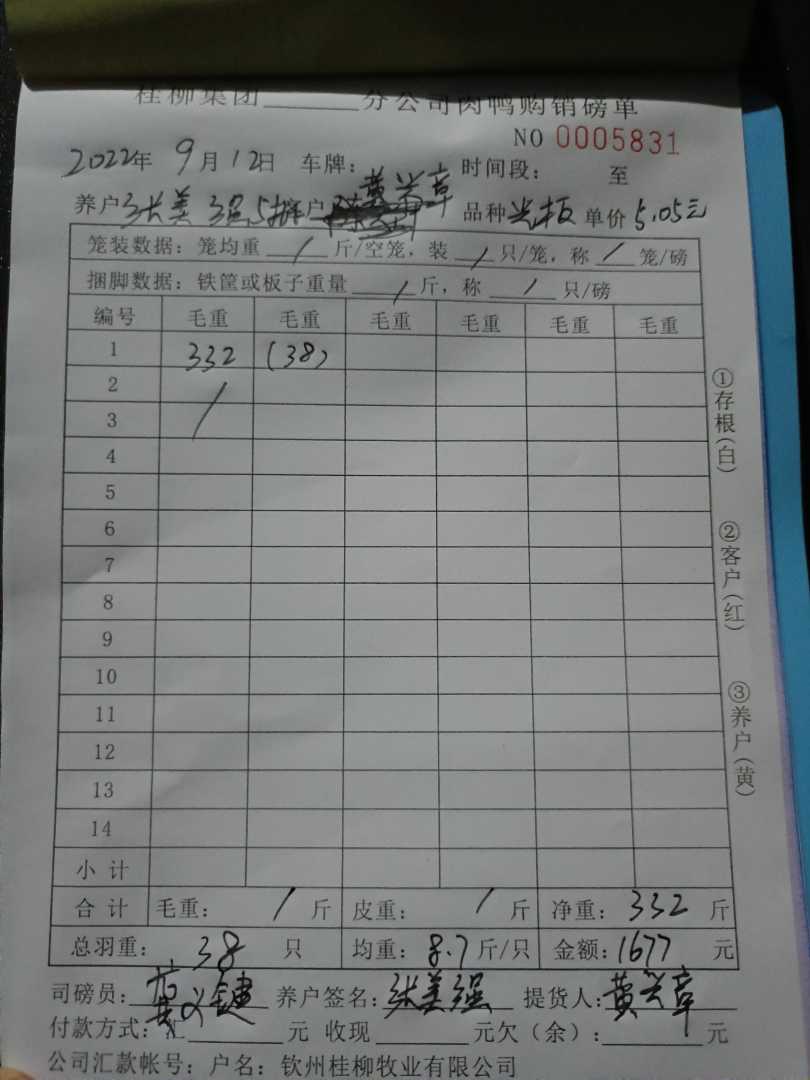 桂柳集团______分公司肉鸭购销磅单
NO 0005831
2022年 9月12日 车牌: 时间段: 至
养户 张美强5棚 客户 黄兴章 品种 光板 单价 5.05元
笼装数据: 笼均重 / 斤/空笼, 装 / 只/笼, 称 / 笼/磅
捆脚数据: 铁筐或板子重量 / 斤, 称 / 只/磅
编号 毛重 毛重 毛重 毛重 毛重 毛重
1 332 (38)
2 /
3
4
5
6
7
8
9
10
11
12
13
14
小计
合计 毛重: / 斤 皮重: / 斤 净重: 332 斤
总羽重: 38 只 均重: 8.7 斤/只 金额: 1677 元
司磅员: 养户签名: 张美强 提货人: 黄兴章
付款方式: 汇______元 收现______元欠(余):______元
公司汇款帐号: 户名: 钦州桂柳牧业有限公司
①存根(白)
②客户(红)
③养户(黄)